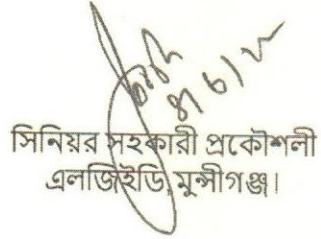 সিনিয়র সহকারী প্রকৌশলী
এলজিইডি, মুন্সীগঞ্জ।